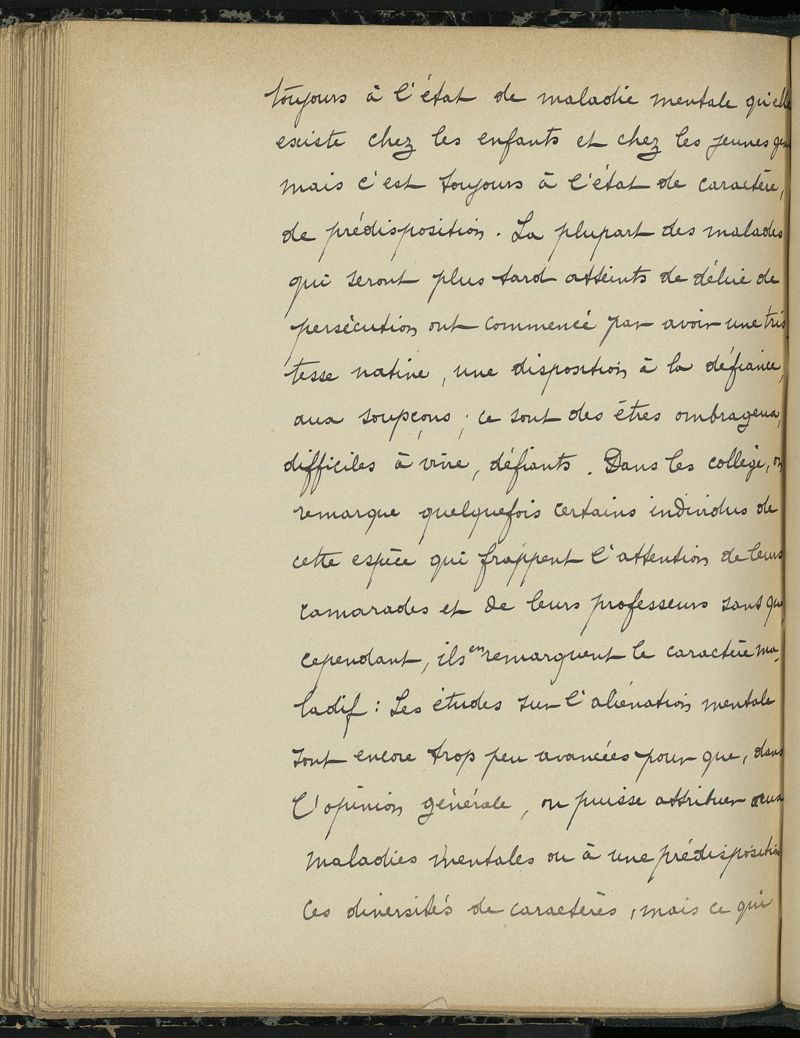 toujours à l'état de maladie mentale qu'elle
existe chez les enfants et chez les jeunes gens
mais c'est toujours à l'état de caractère,
de prédisposition. La plupart des malades
qui seront plus tard atteints de délire de
persécution ont commencé par avoir une tris
tesse native, une disposition à la défiance,
aux soupçons ; ce sont des êtres ombrageux,
difficiles à vivre, défiants. Dans les collège, on
remarque quelquefois certains individus de
cette espèce qui frappent l'attention de leurs
camarades et de leurs professeurs sans que
cependant, ils en remarquent le caractère ma-
ladif : Les études sur l'aliénation mentale
sont encore trop peu avancées pour que, dans
l'opinion générale, on puisse attribuer aux
maladies mentales ou à une prédisposition
ces diversités de caractères, mais ce qui